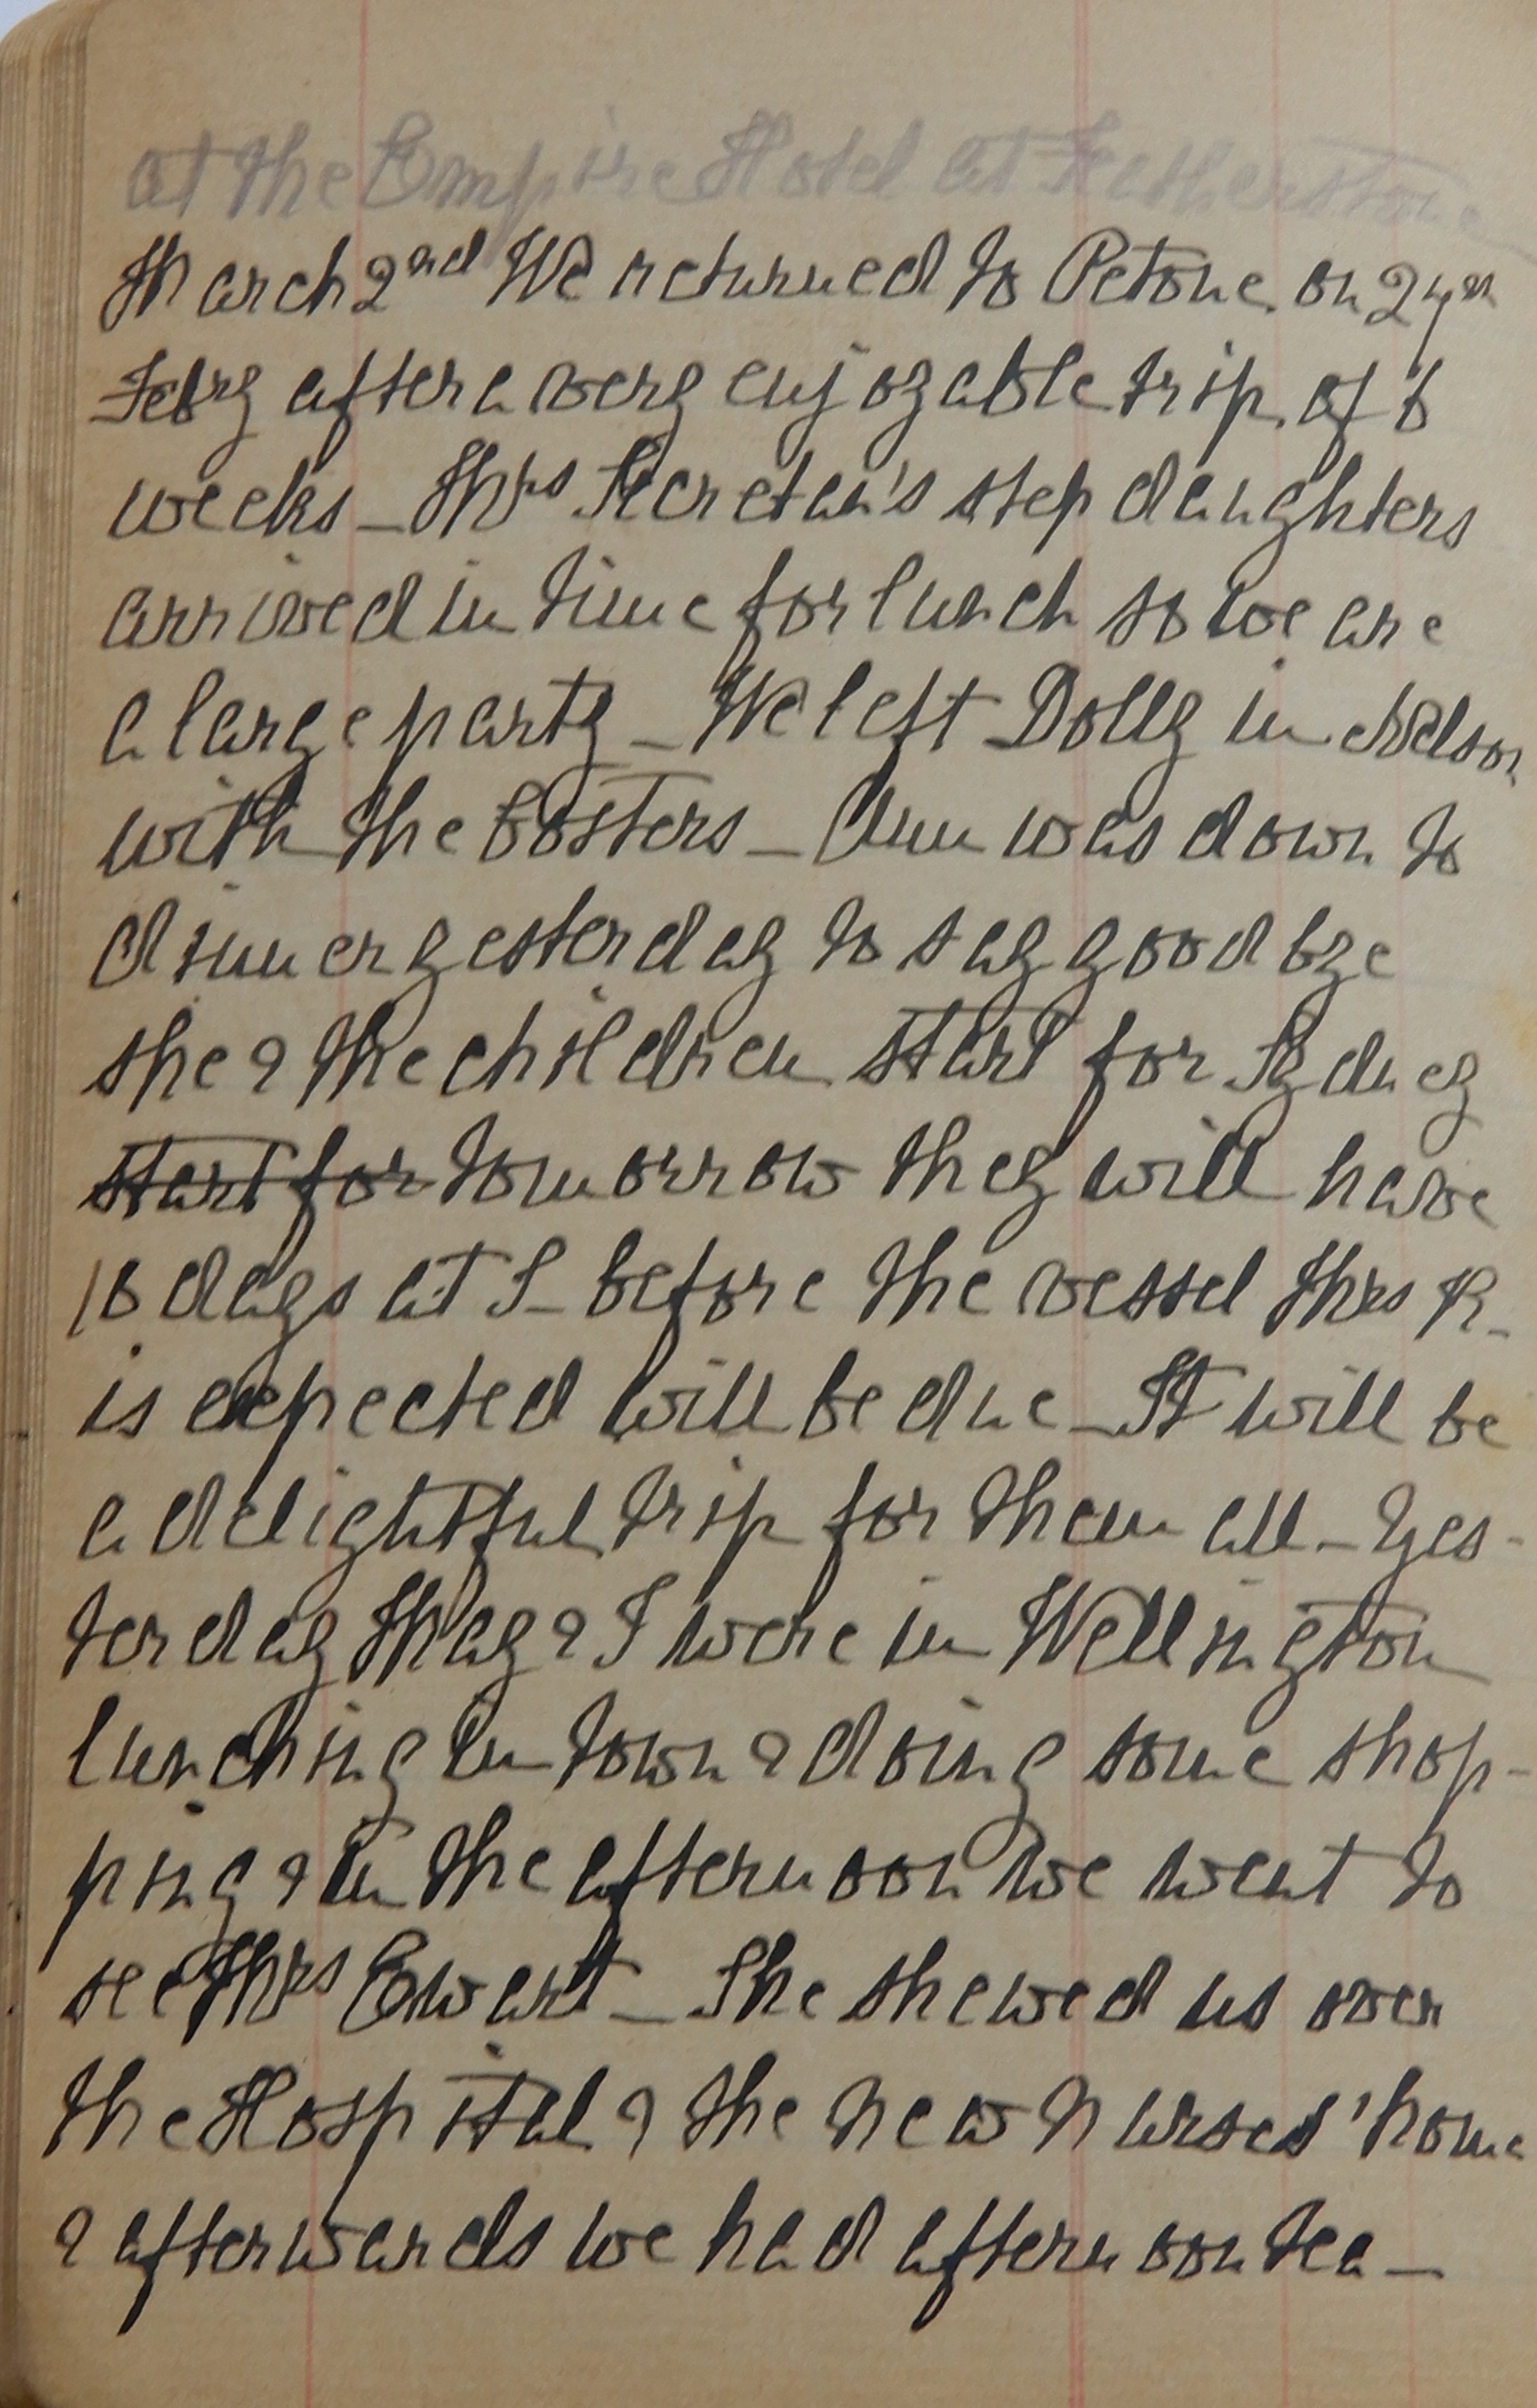 at the Empire Hotel at Featherstone
March 2nd We returned to Petone on 24th
Febry after a very enjoyable trip of 6
weeks _ Mrs Secretan's step daughters
arrived in time for lunch so we are
a large party _ We left Dolly in Nelson
with the Fosters _ Ann was down to
dinner yesterday to say goodbye
she & the children start for Sydney
start for tomorrow they will have
10 days at S_ before the vessel Mrs R_
is expected will be due _ It will be
a delightful trip for them all _ Yes-
terday May & I were in Wellington
lunching in town & doing some shop-
ping & in the afternoon we went to
see Mrs Ewart _ She shewed us over
the Hospital & the new nurses' home
& afterwards we had afternoon tea _